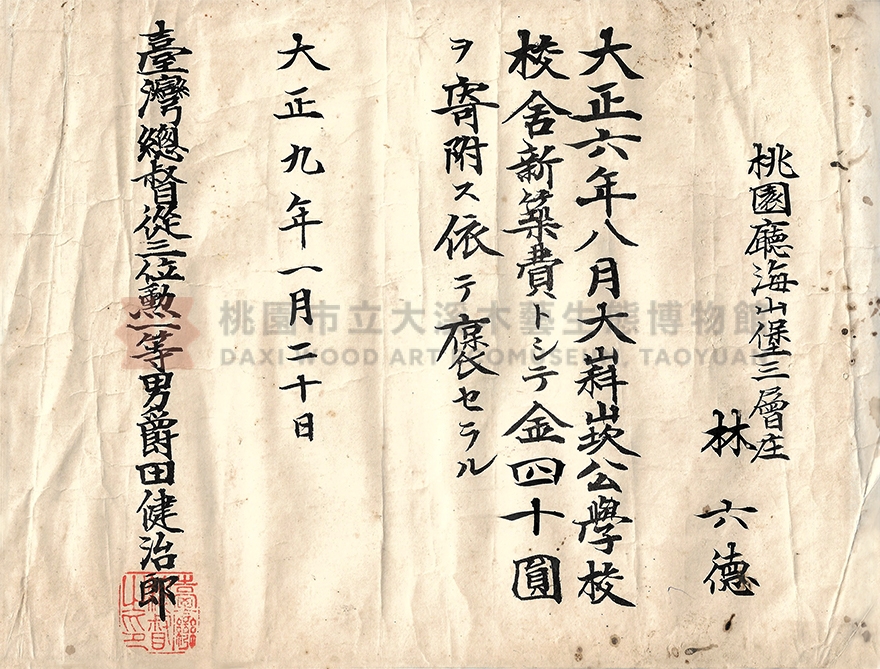 桃園廳海山堡三層庄
林六德
大正六年八月大嵙崁公學校
校舍新築費トシテ金四十圓
ヲ寄附ス依テ褒セラル
大正九年一月二十日
臺灣總督從三位勲一等男爵田健治郎
臺灣總督之印
桃園市立大溪木藝生態博物館
DAXI WOOD ART ECOMUSEUM, TAOYUAN